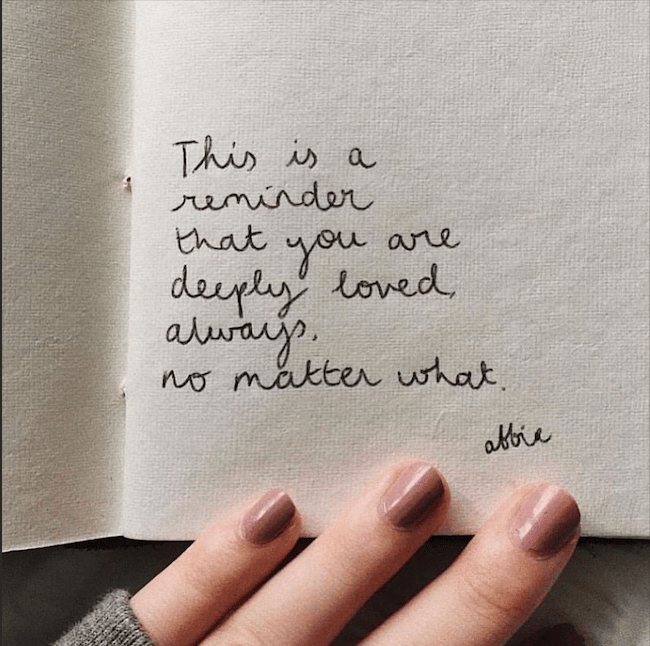 This is a
reminder
that you are
deeply loved,
always,
no matter what.
abbie